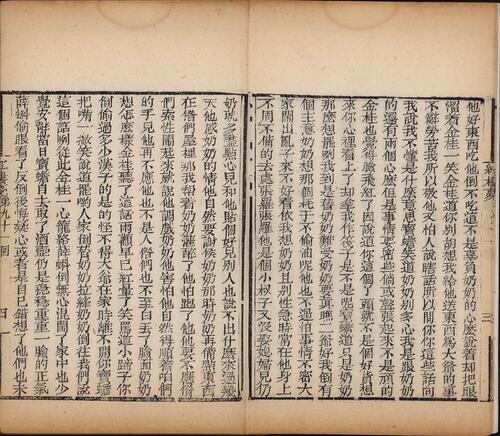 紅樓夢
三
他好東西吃他倒不吃這不是辜負奶奶的心麼說着却把眼
着金桂一笑金桂道你別胡想我給他送東西爲大爺的事
不辭勞苦我所以敬他又怕人說瞎話所以問你你這些話向
我說我不懂是什麼意思寶蟾笑道奶奶別多心我是跟奶奶
的還有兩個心麼但是事情要密些倘或聲張起來不是頑的
金桂也覺得臉飛紅了因說道你這個丫頭就不是個好貨想
來你心裡看上了却拿我作筏子是不是呢寶蟾道只是奶奶
那麼想罷咧我到是替奶奶難受奶奶要真瞧二爺好我倒有
個主意奶奶想那個耗子不偷油呢他也不過怕事情不密大
家鬧出亂子來不好看依我想奶奶且別性急時常在他身上
不周不備的去處張羅張羅他是個小叔子又沒娶媳婦兒奶
奶就多盡點心兒和他貼個好兒別人也說不出什麼來過幾
天他感奶奶的情他自然要謝候奶奶那時奶奶再備點東西
在偺們屋裡我帮着奶奶灌醉了他怕跑了他他要不應偺
們索性鬧起來就說他調戲奶奶他害怕他自然得順着咱們
的手兒他再不應他也不是人偺們也不至白丟了臉面奶奶
想怎麼樣金桂聽了這話兩顴早已紅暈了笑罵道小蹄子你
倒偷過多少漢子的是的怪不得大爺在家時離不開你寶蟾
把嘴一撇笑說道罷喲人家倒替奶奶拉縴奶奶倒往我們說
這個話咧從此金桂一心籠絡薛蝌倒無心混鬧了家中也少
覺安靜當日寶蟾自去取了酒壺仍是穩穩重重一臉的正氣
薛蝌偷眼看了反倒後悔疑心或者是自己錯想了他們也未
紅樓夢第九十一回
四